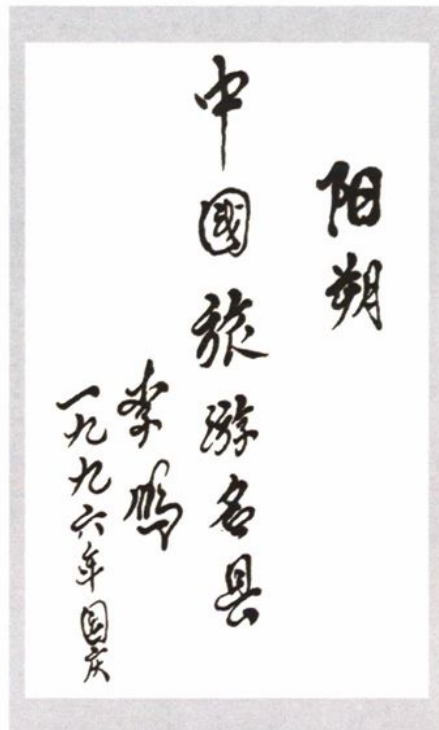 阳朔
中國旅游名县
李鹏
一九九六年国庆